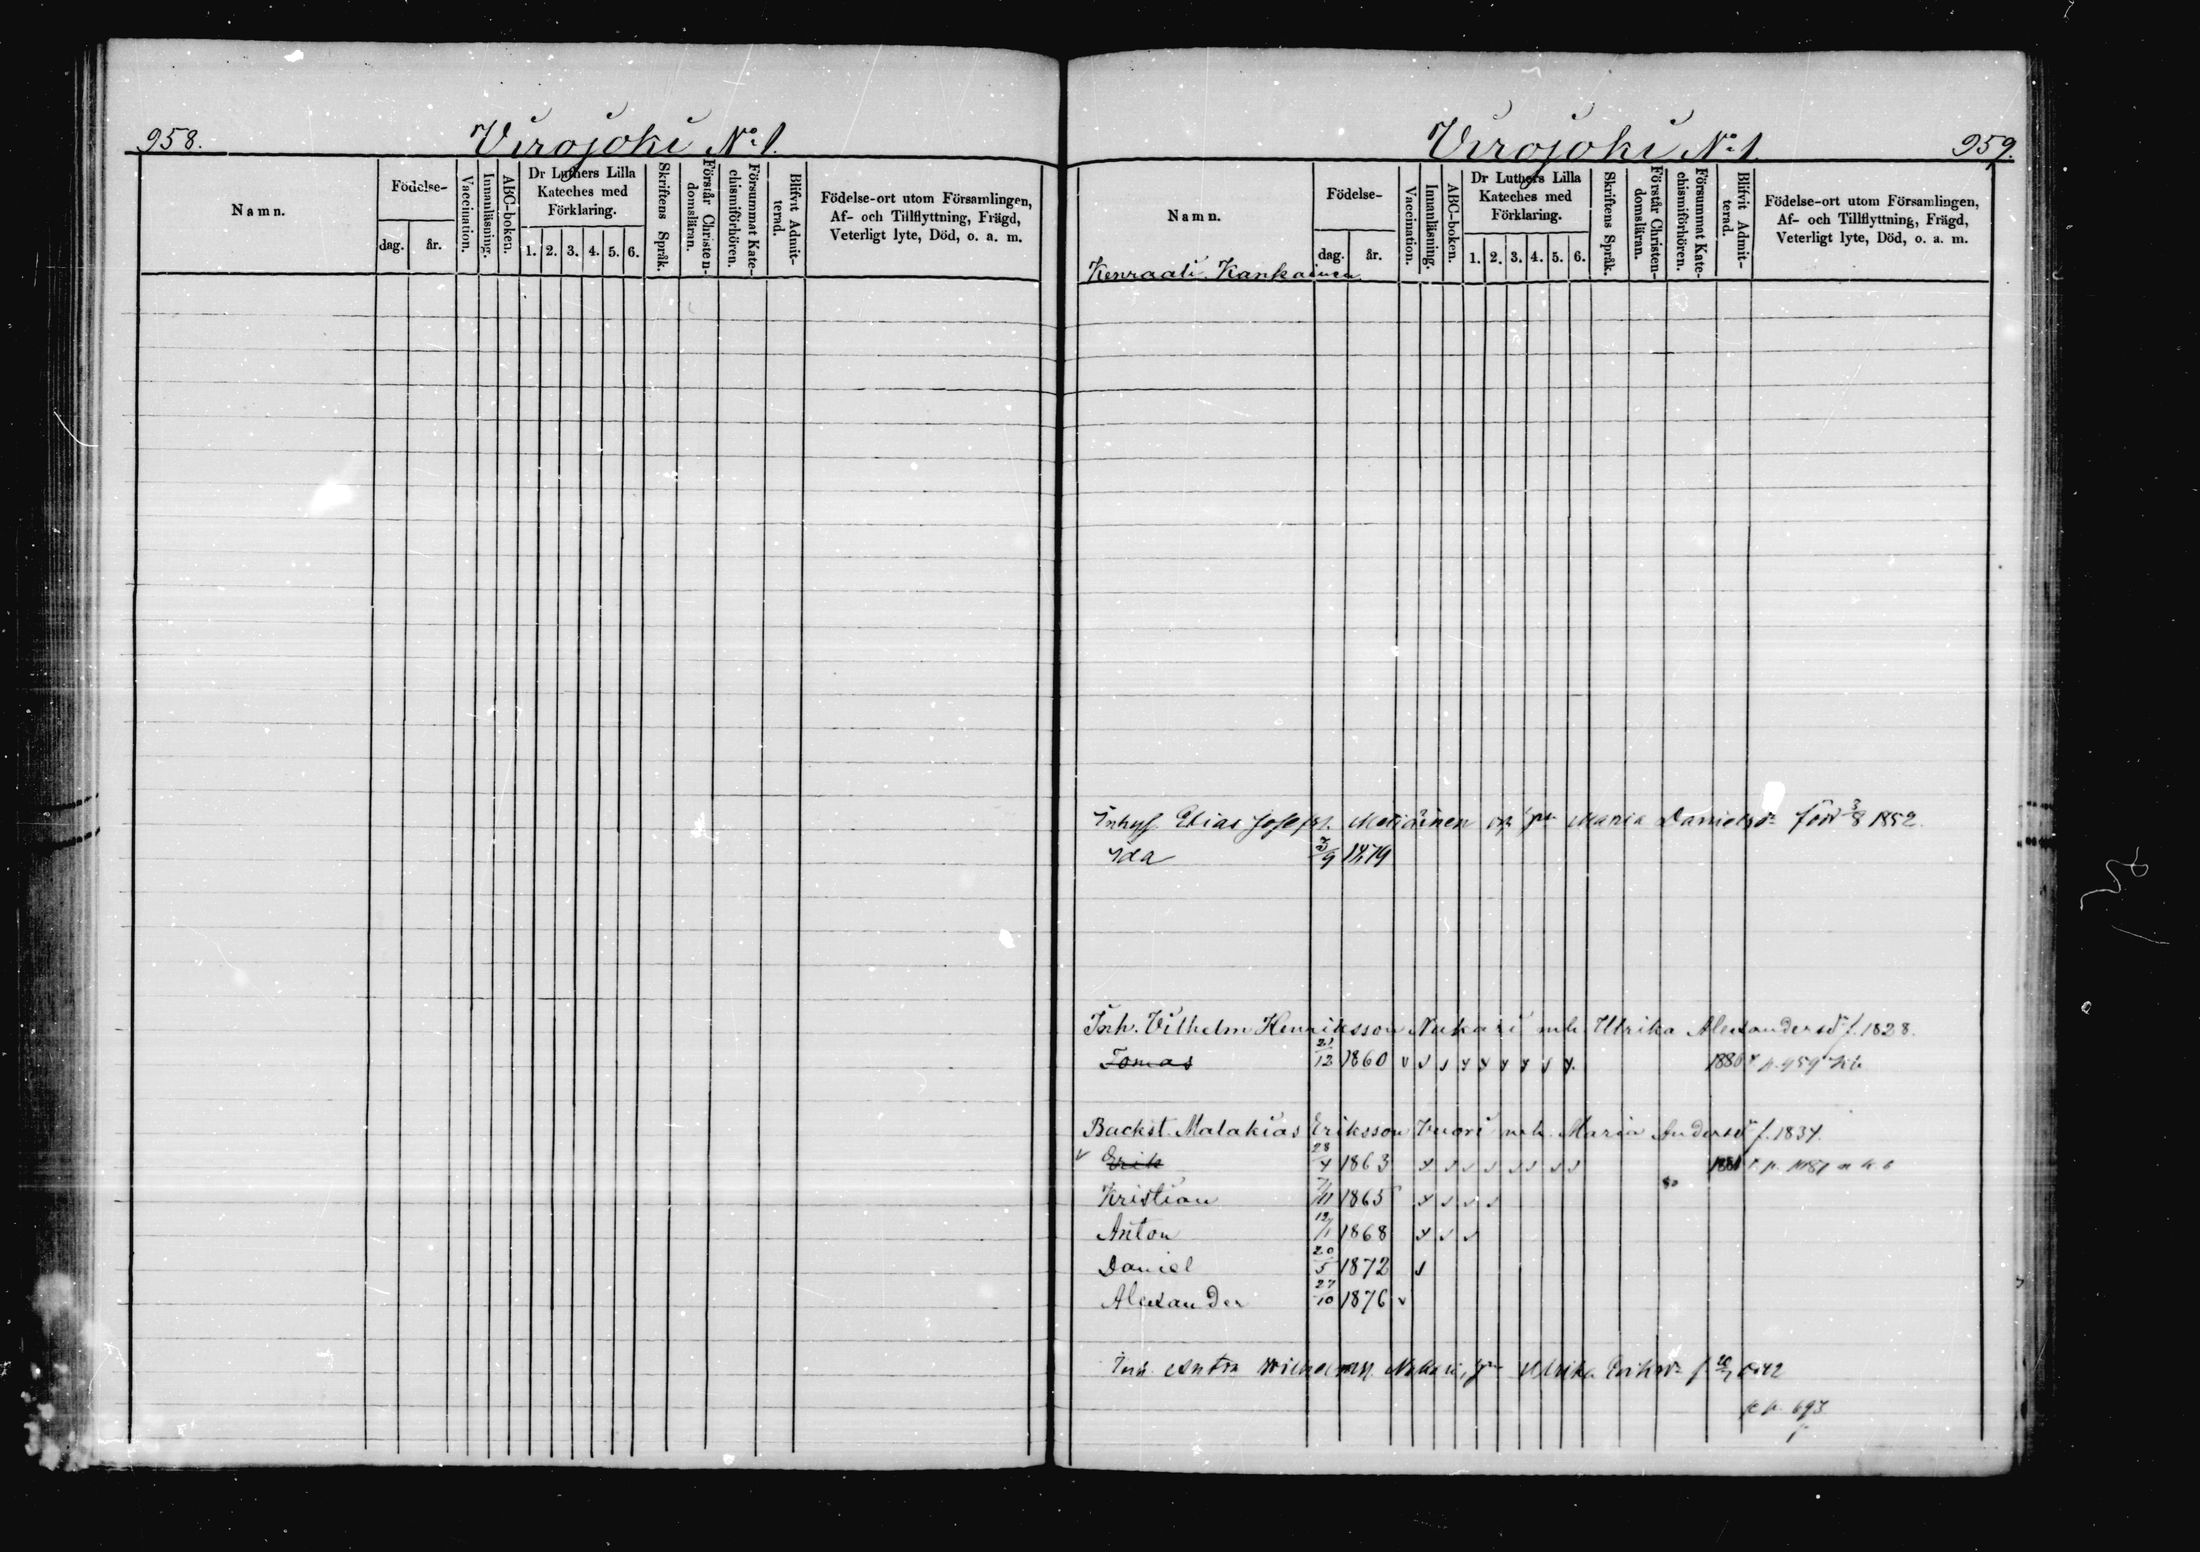 958.
Virojoki No 1.
Namn.
Födelse-
dag.
år.
Vaccination.
Innanläsning.
ABC-boken.
Dr Luthers Lilla
Kateches med
Förklaring.
1. 2. 3. 4. 5. 6.
Skriftens Språk.
Förstår Christen-
domsläran.
Försummat Kate-
chismiförhören.
Blifvit Admit-
terad.
Födelse-ort utom Församlingen,
Af- och Tillflyttning, Frägd,
Veterligt lyte, Död, o. a. m.
Virojoki No 1.
959.
Namn.
Födelse-
dag.
år.
Vaccination.
Innanläsning.
ABC-boken.
Dr Luthers Lilla
Kateches med
Förklaring.
1. 2. 3. 4. 5. 6.
Skriftens Språk.
Förstår Christen-
domsläran.
Försummat Kate-
chismiförhören.
Blifvit Admit-
terad.
Födelse-ort utom Församlingen,
Af- och Tillflyttning, Frägd,
Veterligt lyte, Död, o. a. m.
Kenraali Kankainen
Elias Josefss. Maria Danielsdr född 3/8 1852.
Ida 1879
Inh. Vilhelm Henriksson Nakari mh. Ulrika Alexandersdr f. 1828.
Tomas 21/12 1860 1880 p. 959
Backst. Malakias Eriksson Vuori mh. Maria Andersdr f. 1834.
Erik 28/4 1863
Kristian 7/11 1865
Anton 12/1 1868
Daniel 20/5 1872
Alexander 27/10 1876
Inh. Nakari, Ulrika
p. 693